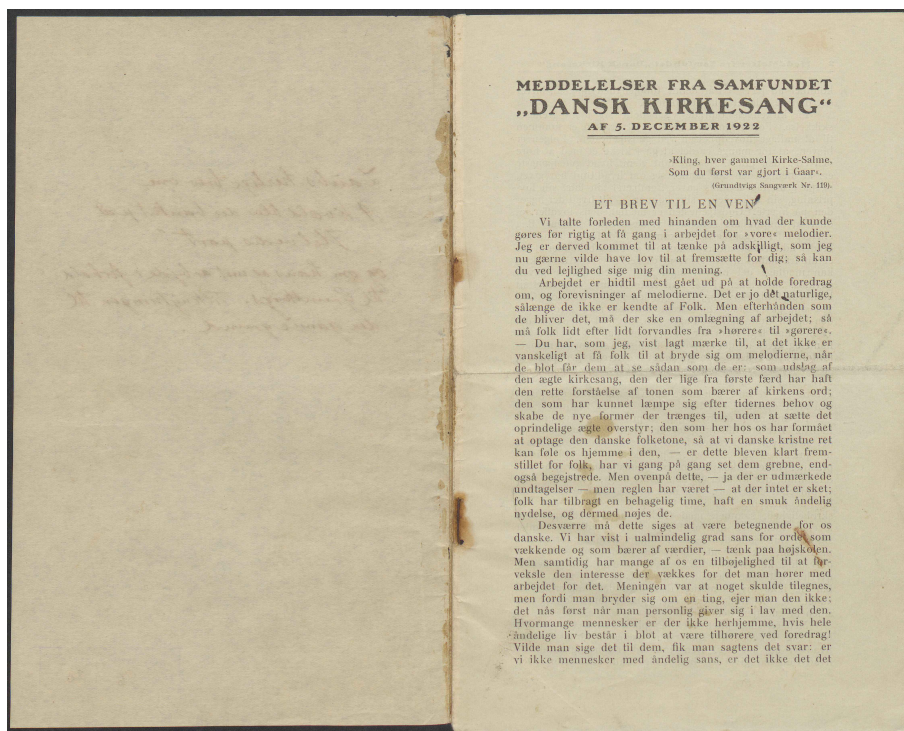 MEDDELELSER FRA SAMFUNDET
„DANSK KIRKESANG“
AF 5. DECEMBER 1922
»Kling, hver gammel Kirke-Salme,
Som du først var gjort i Gaar«.
(Grundtvigs Sangværk Nr. 119).
ET BREV TIL EN VEN
Vi talte forleden med hinanden om hvad der kunde
gøres før rigtig at få gang i arbejdet for »vore« melodier.
Jeg er derved kommet til at tænke på adskilligt, som jeg
nu gærne vilde have lov til at fremsætte for dig; så kan
du ved lejlighed sige mig din mening.
Arbejdet er hidtil mest gået ud på at holde foredrag
om, og forevisninger af melodierne. Det er jo det naturlige,
sålænge de ikke er kendte af Folk. Men efterhånden som
de bliver det, må der ske en omlægning af arbejdet; så
må folk lidt efter lidt forvandles fra »hørere« til »gørere«.
— Du har, som jeg, vist lagt mærke til, at det ikke er
vanskeligt at få folk til at bryde sig om melodierne, når
de blot får dem at se sådan som de er: som udslag af
den ægte kirkesang, den der lige fra første færd har haft
den rette forståelse af tonen som bærer af kirkens ord;
den som har kunnet læmpe sig efter tidernes behov og
skabe de nye former der trænges til, uden at sætte det
oprindelige ægte overstyr; den som her hos os har formået
at optage den danske folketone, så at vi danske kristne ret
kan føle os hjemme i den, — er dette bleven klart frem-
stillet for folk, har vi gang på gang set dem grebne, end-
også begejstrede. Men ovenpå dette, — ja der er udmærkede
undtagelser — men reglen har været — at der intet er sket;
folk har tilbragt en behagelig time, haft en smuk åndelig
nydelse, og dermed nøjes de.
Desværre må dette siges at være betegnende for os
danske. Vi har vist i ualmindelig grad sans for ordet som
vækkende og som bærer af værdier, — tænk paa højskolen.
Men samtidig har mange af os en tilbøjelighed til at for-
veksle den interesse der vækkes for det man hører med
arbejdet for det. Meningen var at noget skulde tilegnes,
men fordi man bryder sig om en ting, ejer man den ikke;
det nås først når man personlig giver sig i lav med den.
Hvormange mennesker er der ikke herhjemme, hvis hele
åndelige liv består i blot at være tilhørere ved foredrag!
Vilde man sige det til dem, fik man sagtens det svar: er
vi ikke mennesker med åndelig sans, er det ikke det det